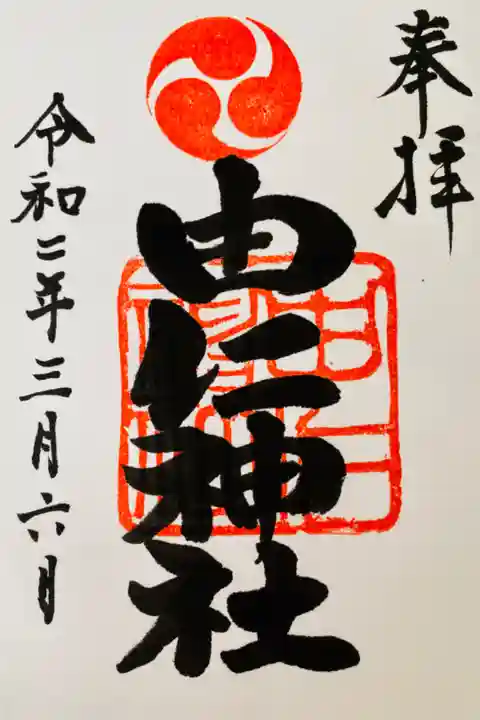 奉拝
由仁神社
令和二年三月六日